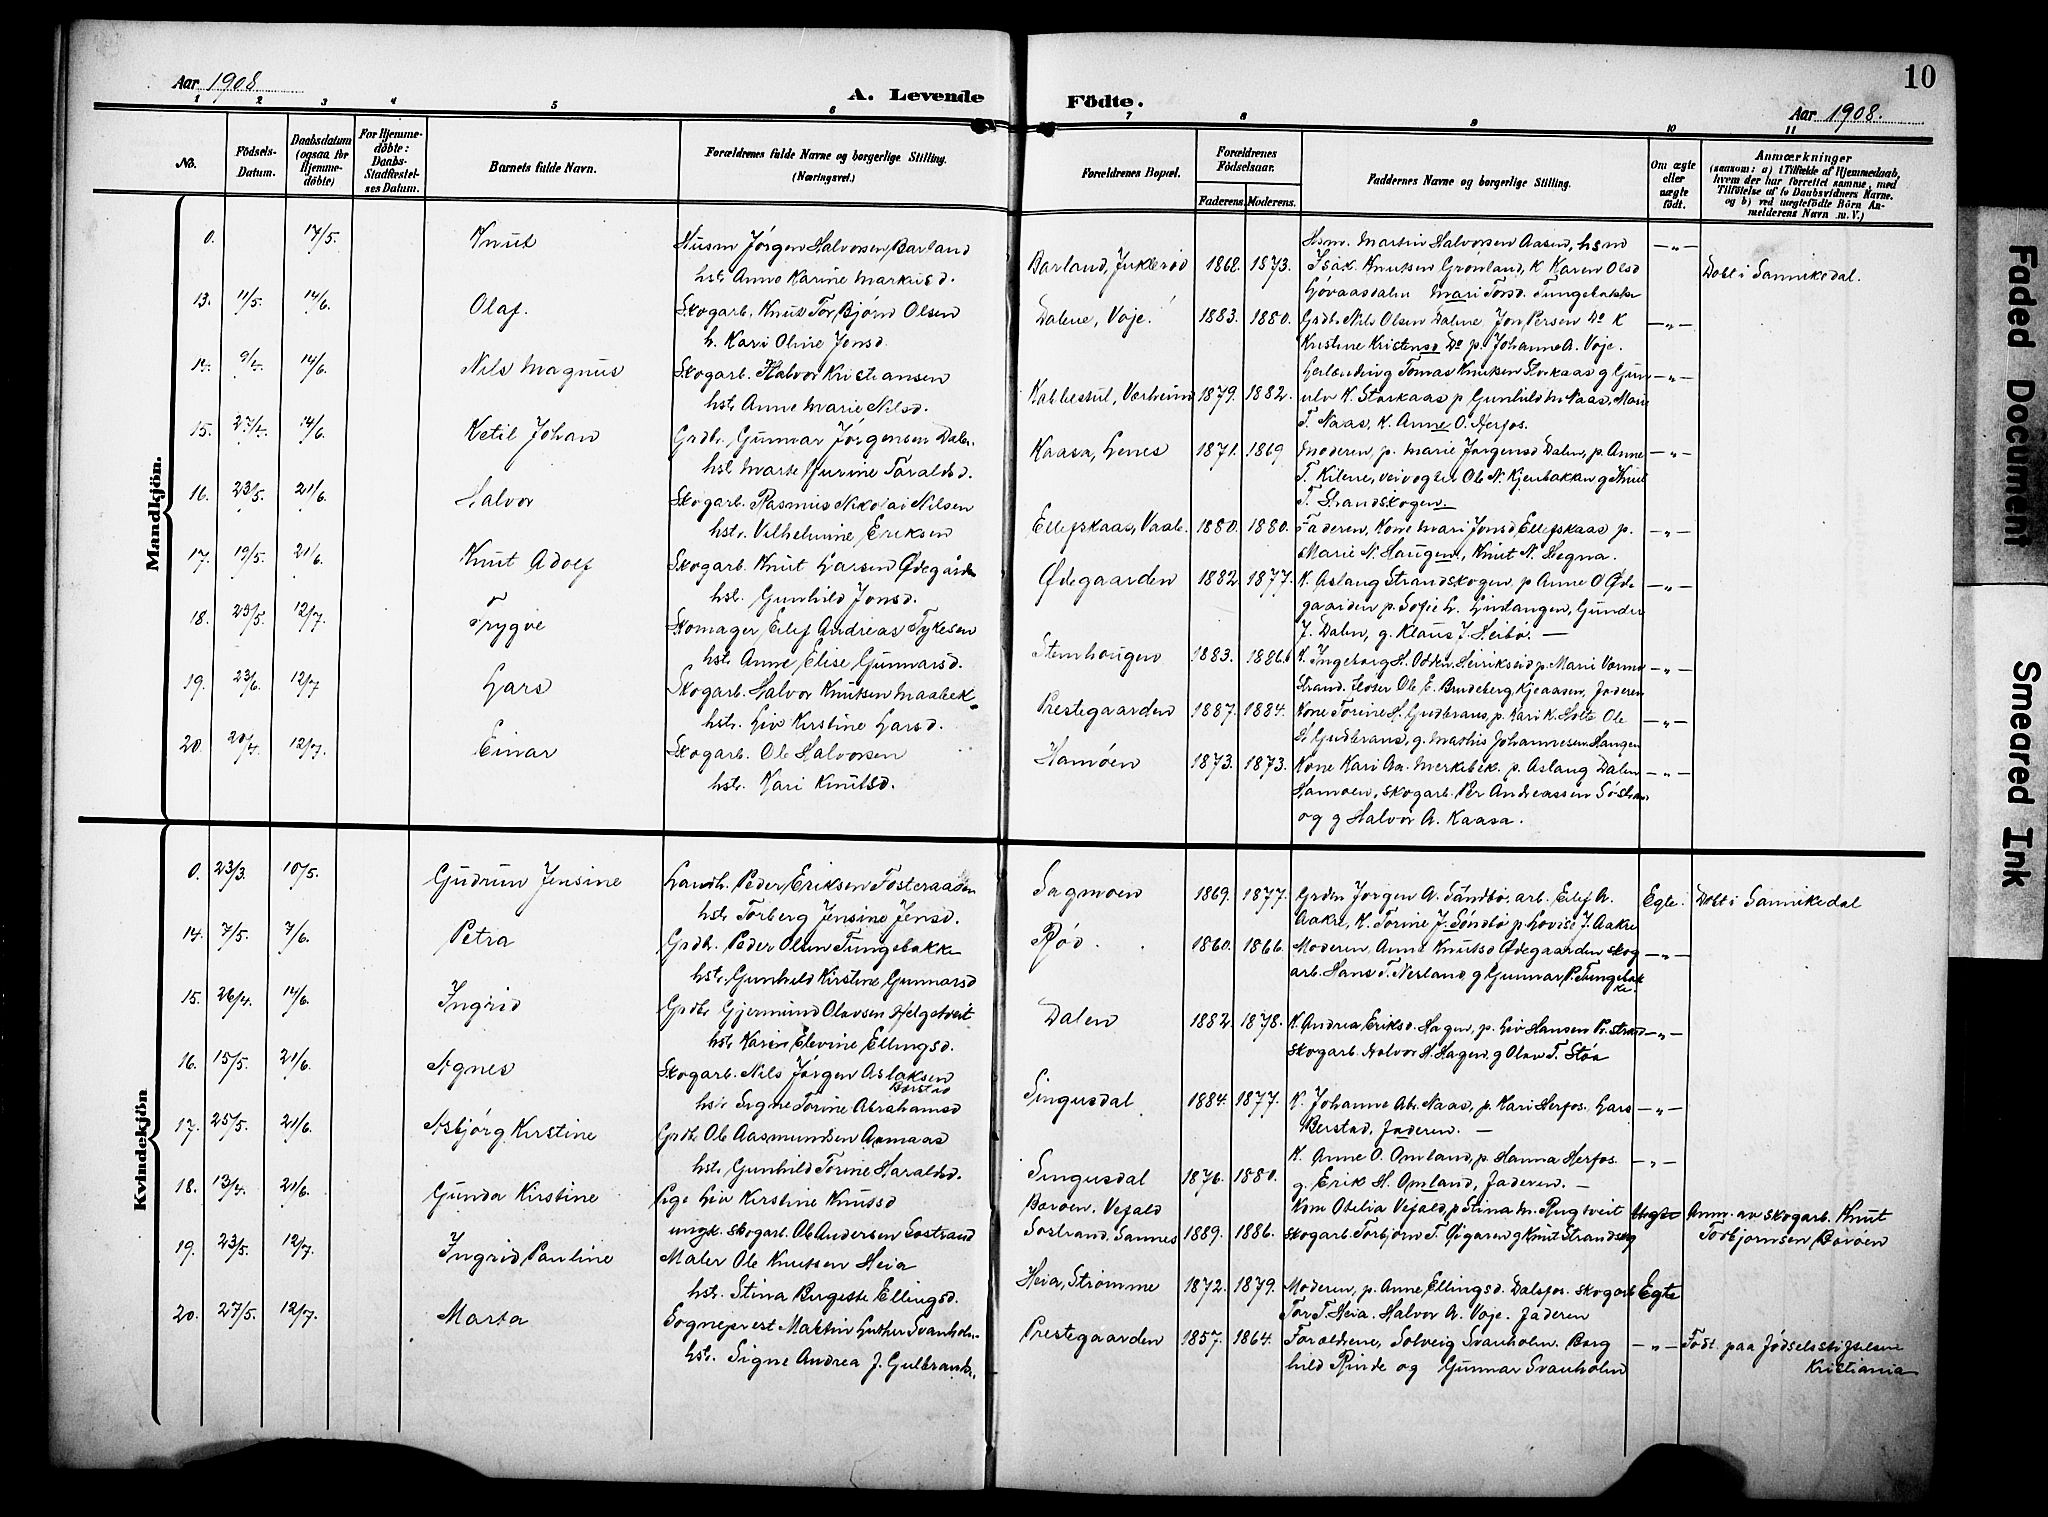 10
Aar 1908
A. Levende Födte.
Aar 1908.
1 2 3 4 5 6 7 8 9 10 11
No.
Födsels-
Datum.
Daabsdatum
(ogsaa for
Hjemme-
döbte)
For Hjemme-
döbte:
Daabs-
Stadfæstel-
ses Datum.
Barnets fulde Navn.
Forældrenes fulde Navne og borgerlige Stilling.
(Næringsvei.)
Forældrenes Bopæl.
Forældrenes
Födselsaar.
Faderens. Moderens.
Faddernes Navne og borgerlige Stilling.
Om ægte
eller
uægte
födt.
Anmærkninger
(saasom: a) i Tilfælde af Hjemmedaab,
hvem der har forrettet samme, med
Tilföielse af to Daabsvidners Navne.
og b) ved uægtefödte Börn An-
melderens Navn m. V.)
Mandkjön.
0. 17/5. Knut
Husm Jørgen Halvorsen Barland
hstr Anne Karine Markusd.
Barland, Juklerød 1868. 1873.
Hsm. Martin Halvorsen Aasen, hsm
Isak Knutsen Grønland, K Karen Olsd
Løvaasdalen Mari Torsd. Tungebakke
—„— Døbt i Sannikedal.
13. 11/5. 14/6. Olaf.
Skogarb. Knut Tor Bjørn Olsen
h. Kari Oline Jonsd.
Dalene, Voje. 1883. 1880.
Grdb. Nils Olsen Dalene Jon Persen Do K
Kristine Kristensd Do p. Johanne A. Voje.
—„—
14. 9/4. 14/6. Nils Magnus
Skogarb. Halvor Kristiansen
hstr Anne Marie Nilsd.
Kabbestul, Værheim 1879. 1882.
Tomas Knutsen Storkaas g Gun
ulv K. Storkaas p Gunhild M Naas, Marie
T. Naas, K. Anne O. Herfos.
—„—
15. 27/4. 14/6. Ketil Johan
Grdbr. Gunnar Jørgensen Dalen
hstr Marte Jurine Taraldsd.
Kaasa, Lenes 1871. 1869
Moderen, p. Marie Jørgensd Dalen, p. Anne
T. Kilene, veivogter Ole N. Kjenbakken g Knut
T. Strandskogen.
—„—
16. 23/5. 21/6. Halvor
Skogarb. Rasmus Nikolai Nilsen
hstr. Vilhelmine Eriksen
Ellefskaas, Vaale. 1880. 1880.
Faderen, Kone Mari Jonsd Ellefskaas p.
Marie N. Haugen, Knut N. Hegna.
—„—
17. 19/5. 21/6. Knut Adolf
Skogarb. Knut Larsen Ødegården
hstr. Gunhild Jonsd.
Ødegaarden 1882 1877.
K. Aslaug Strandskogen p Anne O Øde
gaarden p. Sofie L. Lindlangen, Gunder
J. Dalen, g. Klaus J. Heibø. —
—„—
18. 25/5. 12/7. Trygve
Skomager Eilef Andreas Tykesen
hstr Anne Elise Gunnarsd.
Stemhaugen 1883. 1886.
K. Ingeborg H. Odden, Heirikseid p. Marie Vorme
strand. Ole E. Brudeberg, Kjeaasen, Faderen
—„—
19. 23/6. 12/7 Lars
Skogarb. Halvor Knutsen Maabek
hstr. Liv Kirstine Larsd.
Prestegaarden 1887. 1884.
Kone Torine H. Gudbrans, p. Kari K. Holte Ole
L. Gudbrans, g. Mathis Johannesen Haugen
—„—
20. 20/4. 12/7. Einar
Skogarb. Ole Halvorsen
hstr. Kari Knutsd.
Hamøen 1873. 1873.
Kone Kari Aa. Merkebek. p. Aslaug Dalen
Hamøen, skogarb. Per Andreassen Sostran
og g Halvor A. Kaasa.
—„—
Kvindekjön
0. 23/3. 10/5. Gudrun Jensine
Landh. Peder Eriksen Fosteraasen
hstr Torberg Jensine Jensd.
Sagmoen 1869. 1877.
Grdm Jørgen A. Sandbø, arb. Eilef A.
Aakre, K. Torine J. Søndbø p Lovise J. Aakre
Egte. Døbt i Sannikedal
14. 7/5. 7/6. Petra
Grdb. Peder Olsen Tungebakke
hstr. Gunhild Kirstine Gunnarsd
Rød. 1860. 1866.
Moderen, Anne Knutsd Ødegaarden skog
arb. Hans T. Nesland g Gunnar P. Tungebak
ke.
—„—
15. 26/4. 14/6. Ingrid
Grdbr Gjermund Olavsen Helgetveit
hstr Karen Elevine Ellingsd.
Dalen 1882 1878.
K. Andrea Eriksd. Hagen, p. Liv Hansen Pr.strand
skogarb. Halvor H. Hagen g Olav T. Støa
—„—
16. 15/5. 21/6. Agnes
Skogarb. Nils Jørgen Aslaksen
Berstad
hstr Signe Torine Abrahamsd
Singusdal 1884. 1877.
K. Johanne Abr. Naas, p. Kari Herfos. Lars
Berstad, Faderen. —
—„—
17. 25/5. 21/6. Asbjørg Kirstine
Grdbr Ole Aasmundsen Aamaas
hstr. Gunhild Torine Haraldsd.
Singusdal 1876. 1880.
K. Anne O. Omland, p. Hanna Herfos.
g. Erik H. Omland, Faderen. —
—„—
18. 13/4. 21/6. Gunda Kirstine
Pige Liv Kirstine Knutsd
ungk. skogarb. Ole Andersen Sostrand
Borøen, Vefald
Sostrand, Sannes 1889. 1886.
Kom Obelia Vefald, p Stina M. Rugtveit
skogarb. Torbjørn T. Øigaren g Knut Strandskog
Uegte Anm. av skogarb. Knut
Torbjørnsen Borøen
19. 23/5. 12/7. Ingrid Pauline
Maler Ole Knutsen Heia
hstr. Stina Birgette Ellingsd.
Heia, Strømme 1872. 1879.
Moderen, p. Anne Ellingsd. Dalsfos. skogarb
Tor T. Heia, Halvor A. Voje. Faderen
Egte
20. 27/5. 12/7. Marta
Sogneprest Martin Luther Svanholm
hstr. Signe Andrea J. Gulbrands.
Prestegaarden 1857. 1864.
Foreldrene, Solveig Svanholm. Borg
hild Rinde og Gunnar Svanholm
—„— Født paa Fødselsstiftelsen
Kristiania
Faded Document
Smeared Ink